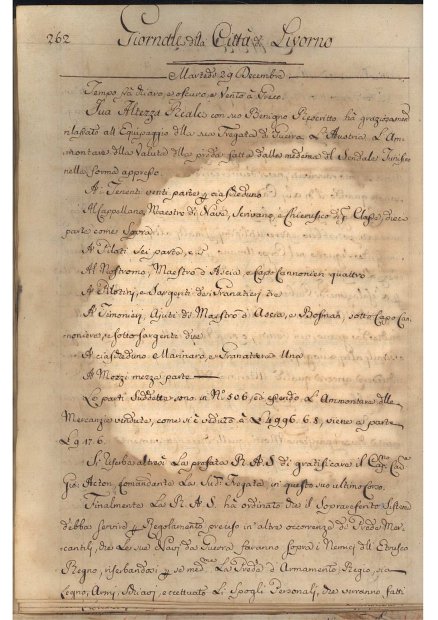 262 Giornale della Città di Livorno
Martedì 29 Decembre
Tempo frà chiaro, e oscuro, e Vento à Greco.
Sua Altezza Reale con suo Benigno Rescritto hà graziosamen
rilasciato all'Equipaggio della sua Fregata di Guerra L'Austria L'Am
montare della Valuta della preda fatta dalla medema al Sendale Tunisino
nella forma appreso.
A i Tenenti venti parte per ciascheduno
Al Capellano, Maestro di Nave, Scrivano, e Chierusico di pa. Classe, dieci
parte come sopra
A Piloti Sei parte, e
Al Nostromo, Maestro d'Ascia, e Capo Cannonieri quattro
A Pilotini, e Sargenti de Granatieri tre
A Timonieri, Ajuti di Maestro d'Ascia, e Bosman, sotto Capo Can-
noniere, e sotto Sargente due
A ciascheduno Marinaro, e Granatiere Una
A Mozzi mezza parte
Le parti Suddette sono in No. 506, ed essendo L'Ammontare delle
Mercanzie vendute, come si è veduto à L 4996.6.8, viene a parte
L 9.17.6.
Si riserba altresì La prefata R. A. S. di gratificare il Cav.
Gio: Acton, comandante La Sud. Fregata, in questo suo ultimo Corso.
Finalmente La R. A. S. hà ordinato che il Sopraeserito Sistema
debba servire per Regolamento preciso in altre occorrenze di Prede Mer-
cantili, che Le sue Navi da Guerra faranno sopra i Nemici dell'Etrusco
Regno, riserbandosi per se med. La Preda d'Armamento Regio, sia
Legno, Armi, Schiavi, e eccettuato Li Spogli Personali, che verranno fatti